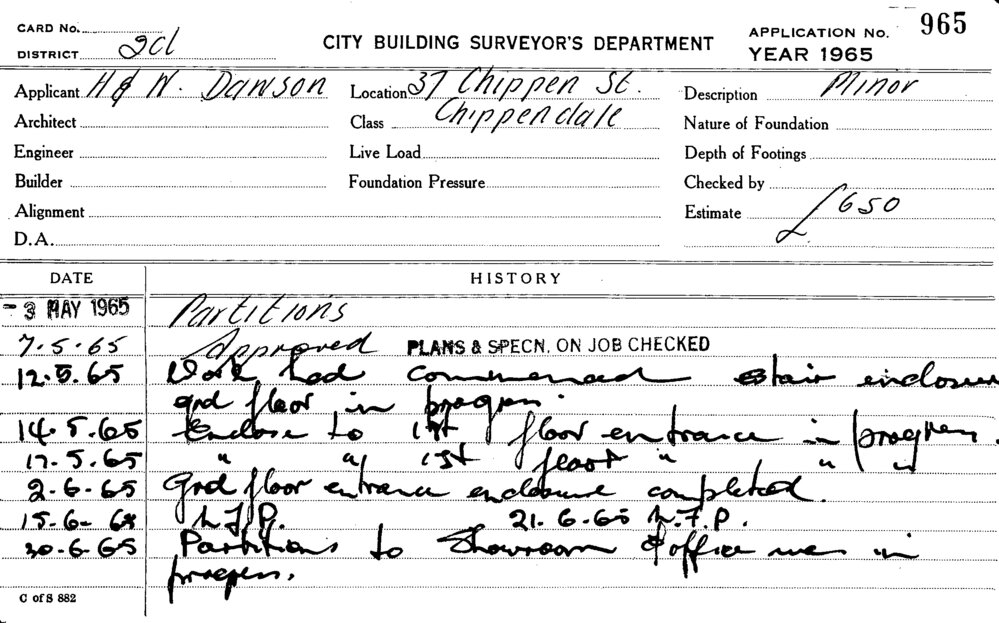 CARD No.
DISTRICT 2cl
CITY BUILDING SURVEYOR'S DEPARTMENT
APPLICATION No. 965
YEAR 1965
Applicant H & W. Dawson
Location 37 Chippen St.
Description Minor
Architect
Class Chippendale
Nature of Foundation
Engineer
Live Load
Depth of Footings
Builder
Foundation Pressure
Checked by
Alignment
Estimate £650
D.A.
DATE HISTORY
- 3 MAY 1965 Partitions
7.5.65 Approved PLANS & SPECN. ON JOB CHECKED
12.5.65 Work had commenced stair enclosure
grd floor in progress.
14.5.65 Enclose to 1st floor entrance in progress.
17.5.65 " " 1st floor " " "
2-6-65 Grd floor entrance enclosure completed.
15-6- 21.6.65 W.F.P.
30-6-65 Partitions to Showroom & office in
progress.
C of S 882